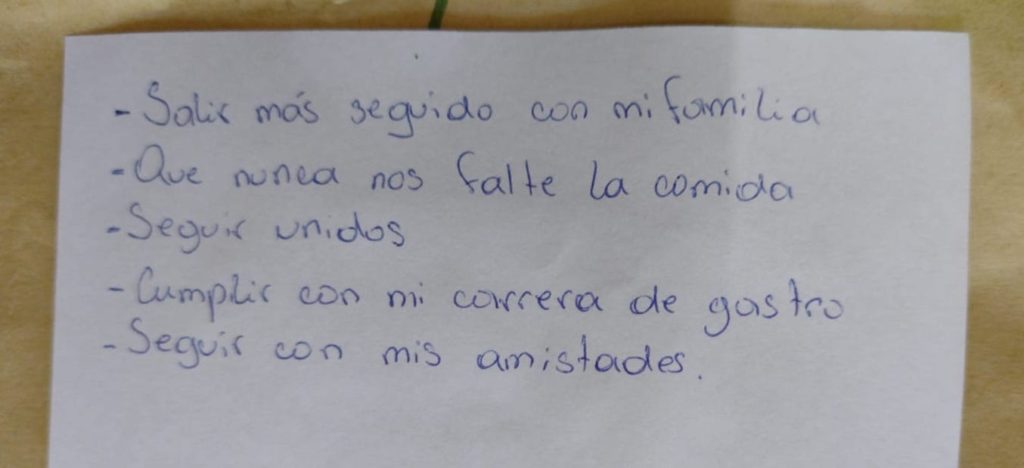 - Salir más seguido con mi familia
- Que nunca nos falte la comida
- Seguir unidos
- Cumplir con mi carrera de gastro
- Seguir con mis amistades.